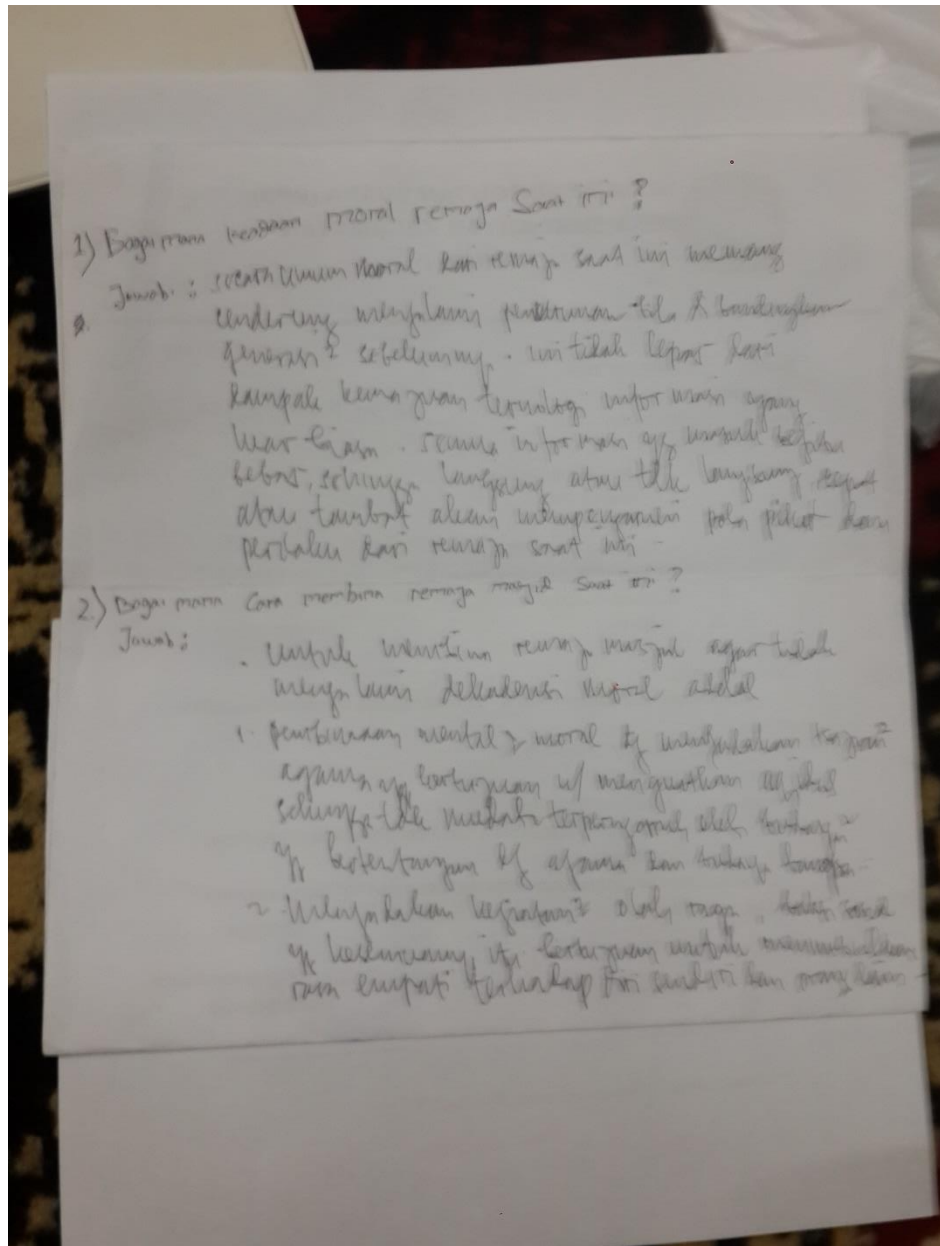 1) Bagaimana keadaan moral remaja saat ini ?
Jawab : secara umum moral dari remaja saat ini memang
cenderung mengalami penurunan di bandingkan
generasi² sebelumnya. ini tidak lepas dari
dampak kemajuan teknologi informasi yang
luar biasa. semua informasi yg begitu
bebas, sehingga langsung atau tdk langsung cepat
atau lambat akan mempengaruhi pola pikir dan
perilaku dari remaja saat ini
2.) Bagaimana Cara membina remaja masjid saat ini ?
Jawab :
. untuk membina remaja masjid agar tidak
mengalami dekadensi moral adalah
1. pembinaan mental & moral dg mengadakan
agama yg bertujuan u/ menguatkan
sehingga tdk mudah terpengaruh oleh budaya²
yg bertentangan dg agama dan budaya bangsa
2. Mengadakan kegiatan² olah raga,
yg kesemuanya itu bertujuan untuk menumbuhkan
rasa empati terhadap diri sendiri dan orang lain